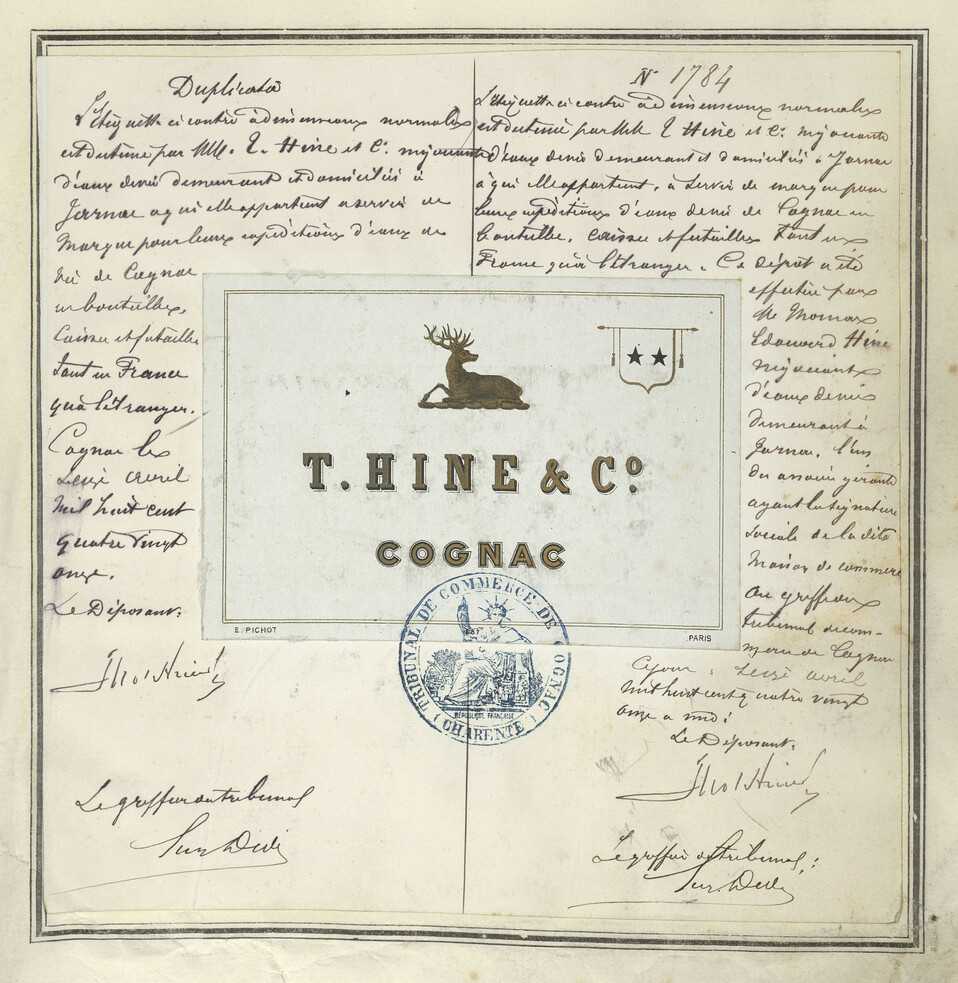 Duplicata
L'étiquette ci contre à dimensions normales
est destinée par MM. T. Hine et Cie négociants
d'eaux de vie demeurant et domiciliés à
Jarnac a qui elle appartient a servir de
Marque pour leurs expéditions d'eaux de
vie de Cognac
en bouteilles,
Caisses et futailles
tant en France
qu'à l'étranger.
Cognac le
seize avril
Mil huit cent
quatre vingt
onze.
Le Déposant:
Thos Hine
Le greffier du tribunal
N° 1784
L'étiquette ci contre à dimensions normales
est destinée par MM T Hine et Cie négociants
d'eaux de vie demeurant et domiciliés à Jarnac
à qui elle appartient, à servir de marque pour
leurs expéditions d'eaux de vie de Cognac en
bouteilles, caisses et futailles tant en
France qu'à l'étranger. Ce dépôt a été
effectué par
Mr Thomas
Edouard Hine
négociant
d'eaux de vie
demeurant à
Jarnac, l'un
des associés gérants
ayant la signature
sociale de la dite
Maison de commerce
Au greffe du
tribunal de com-
merce de Cognac
Ce jour, seize avril
mil huit cent quatre vingt
onze a midi
Le Déposant:
Thos Hine
Le greffier du tribunal:
T. HINE & Co.
COGNAC
E. PICHOT
PARIS
TRIBUNAL DE COMMERCE DE COGNAC
RÉPUBLIQUE FRANÇAISE
(CHARENTE)